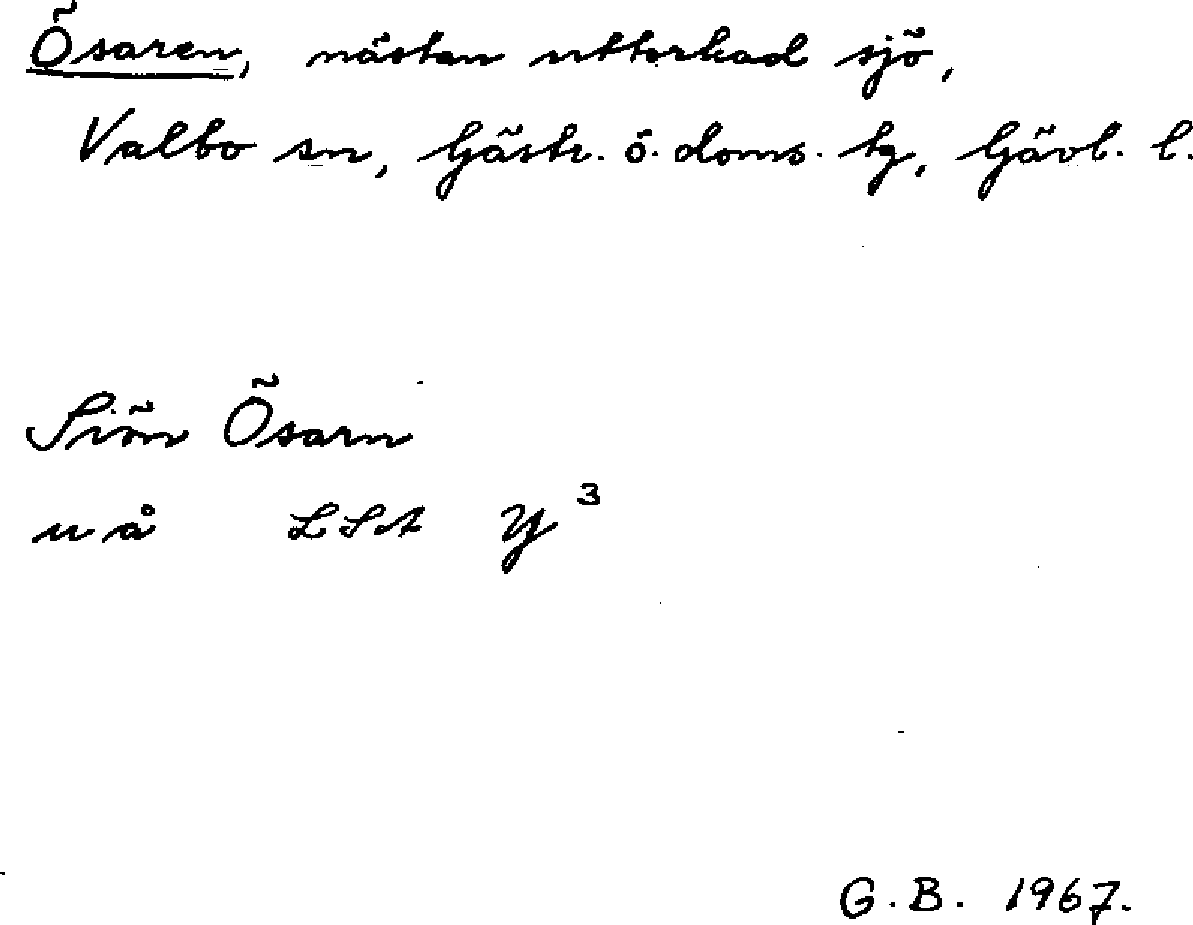 Ösaren, nästan uttorkad sjö,
Valbo sn, Gästr. ö. doms. tg, Gävl. l.
Siön Ösarn
u å LSA Y³
G.B. 1967.